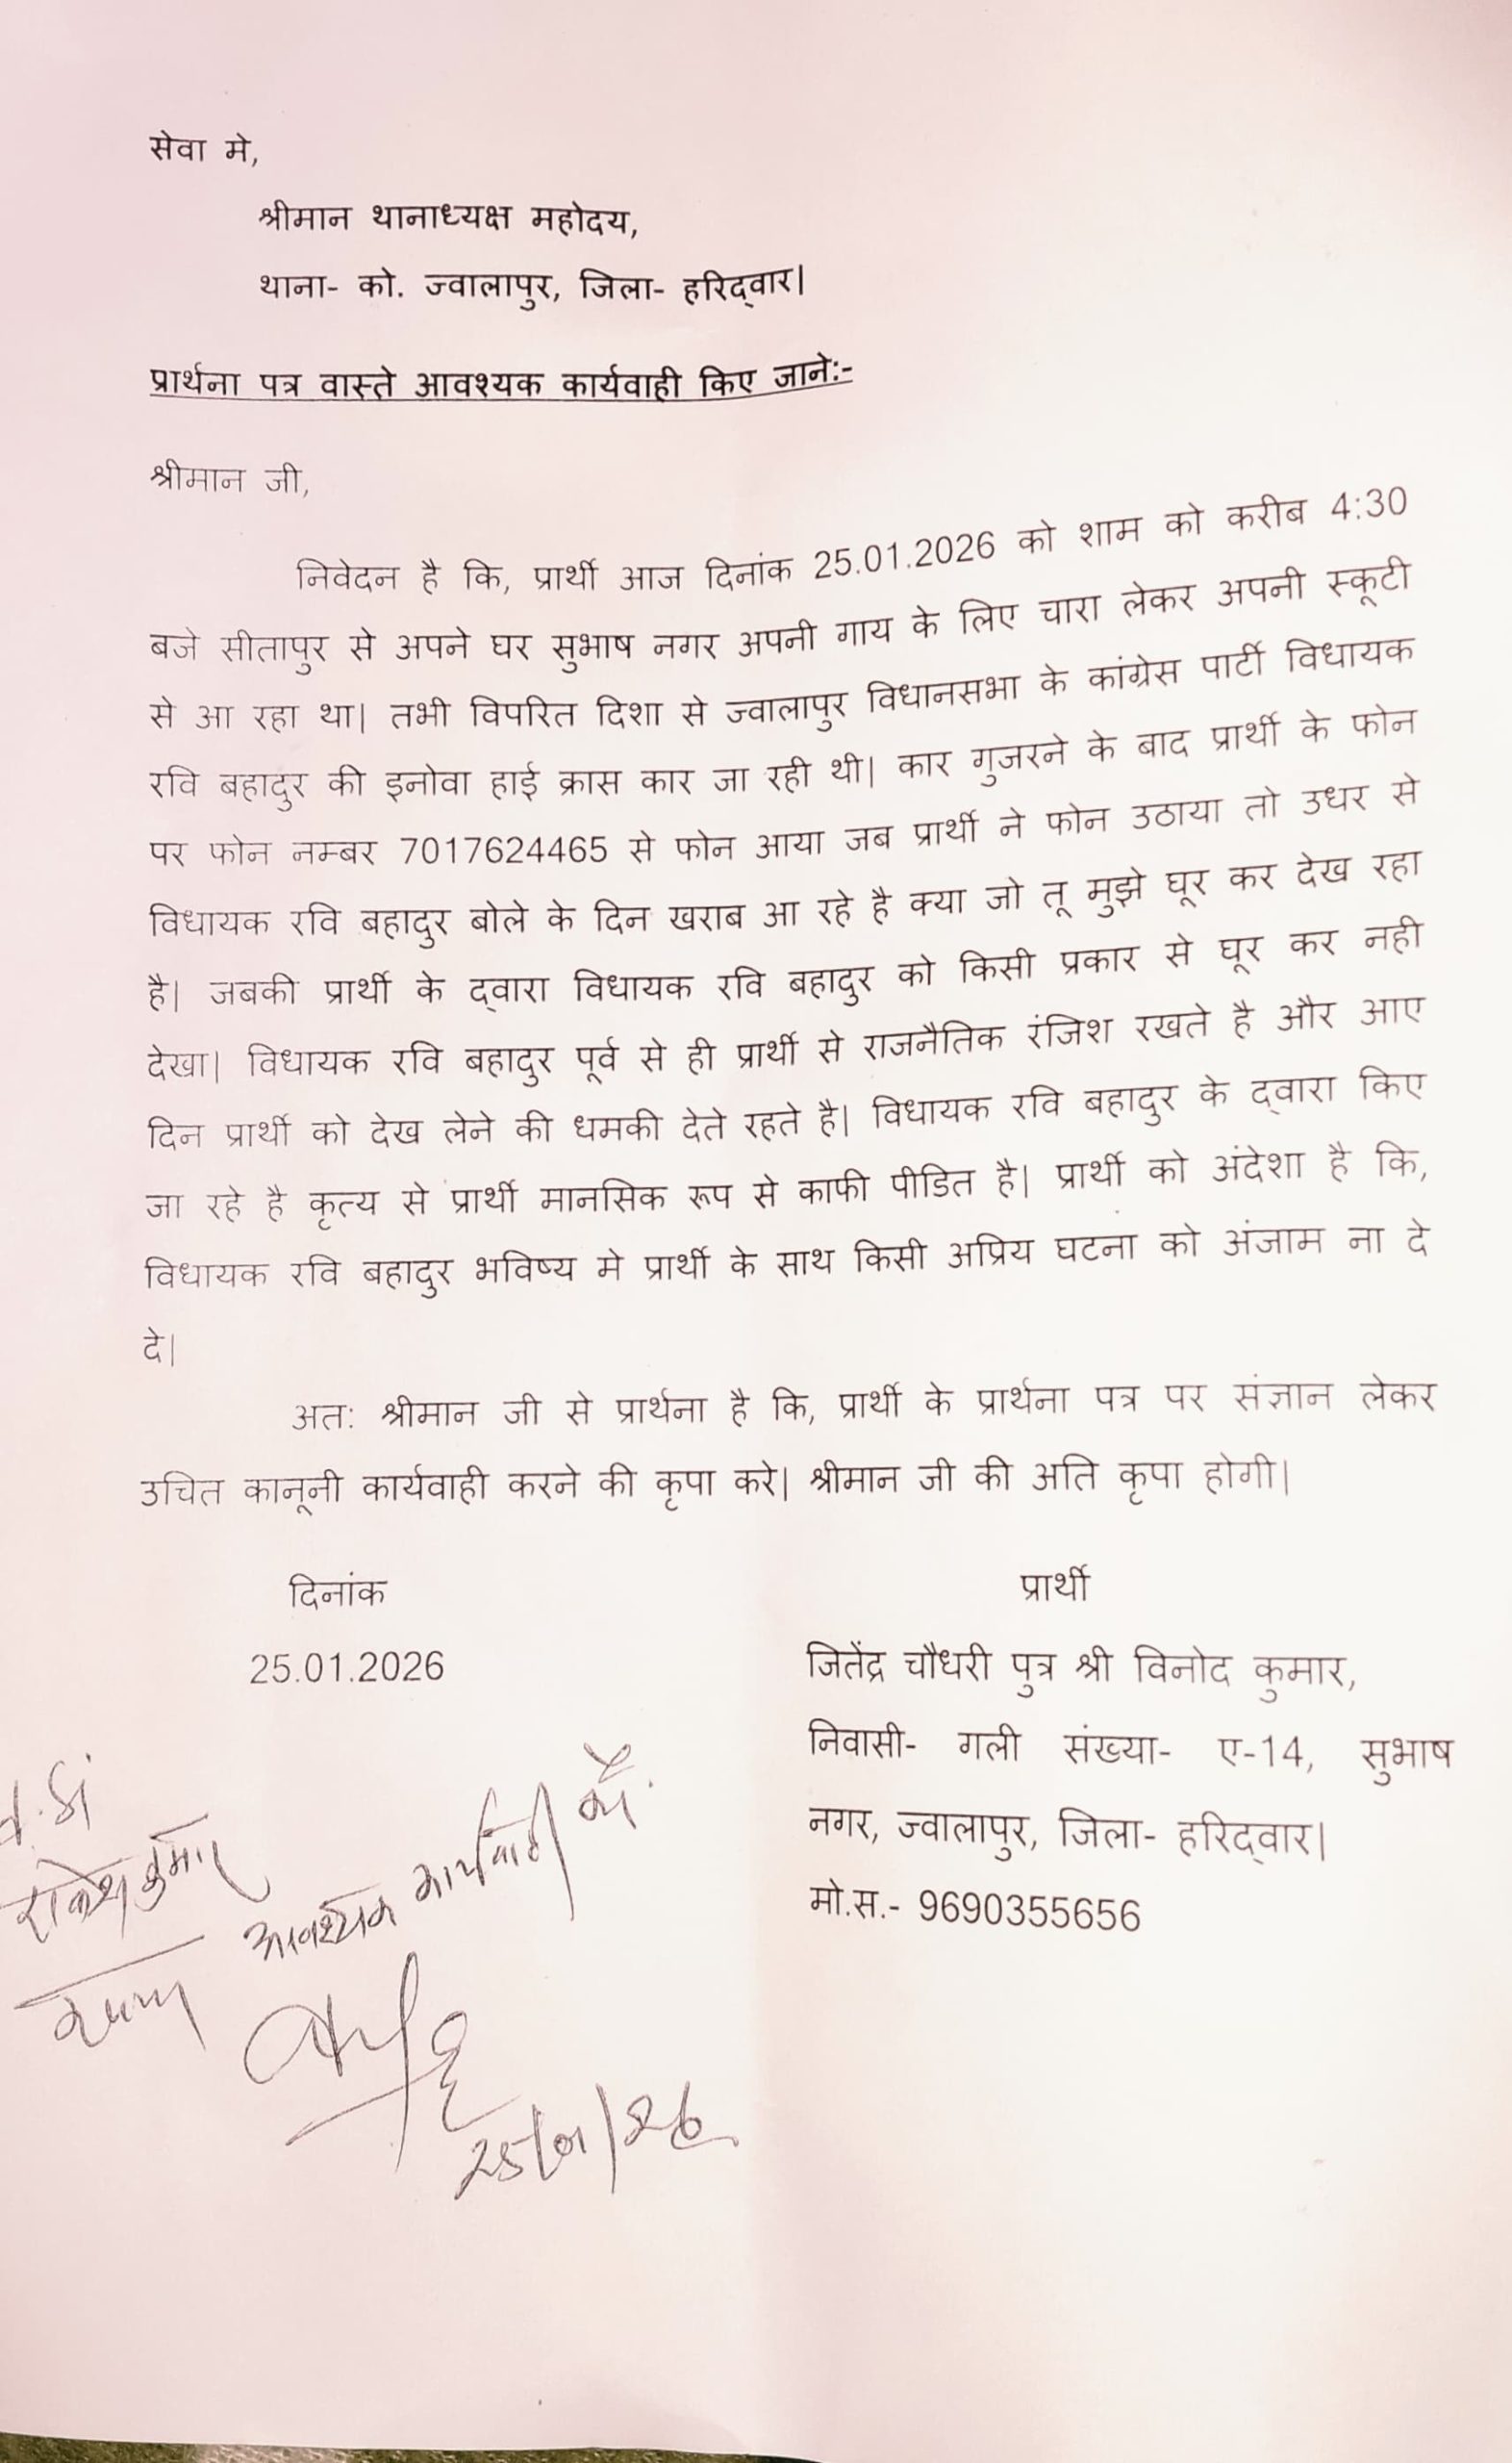 सेवा मे,
श्रीमान थानाध्यक्ष महोदय,
थाना- को. ज्वालापुर, जिला- हरिद्वार।
प्रार्थना पत्र वास्ते आवश्यक कार्यवाही किए जाने:-
श्रीमान जी,
निवेदन है कि, प्रार्थी आज दिनांक 25.01.2026 को शाम को करीब 4:30
बजे सीतापुर से अपने घर सुभाष नगर अपनी गाय के लिए चारा लेकर अपनी स्कूटी
से आ रहा था। तभी विपरित दिशा से ज्वालापुर विधानसभा के कांग्रेस पार्टी विधायक
रवि बहादुर की इनोवा हाई क्रास कार जा रही थी। कार गुजरने के बाद प्रार्थी के फोन
पर फोन नम्बर 7017624465 से फोन आया जब प्रार्थी ने फोन उठाया तो उधर से
विधायक रवि बहादुर बोले के दिन खराब आ रहे है क्या जो तू मुझे घूर कर देख रहा
है। जबकी प्रार्थी के द्वारा विधायक रवि बहादुर को किसी प्रकार से घूर कर नही
देखा। विधायक रवि बहादुर पूर्व से ही प्रार्थी से राजनैतिक रंजिश रखते है और आए
दिन प्रार्थी को देख लेने की धमकी देते रहते है। विधायक रवि बहादुर के द्वारा किए
जा रहे है कृत्य से प्रार्थी मानसिक रूप से काफी पीडित है। प्रार्थी को अंदेशा है कि,
विधायक रवि बहादुर भविष्य मे प्रार्थी के साथ किसी अप्रिय घटना को अंजाम ना दे
दे।
अत: श्रीमान जी से प्रार्थना है कि, प्रार्थी के प्रार्थना पत्र पर संज्ञान लेकर
उचित कानूनी कार्यवाही करने की कृपा करे। श्रीमान जी की अति कृपा होगी।
दिनांक
25.01.2026
प्रार्थी
जितेंद्र चौधरी पुत्र श्री विनोद कुमार,
निवासी- गली संख्या- ए-14, सुभाष
नगर, ज्वालापुर, जिला- हरिद्वार।
मो.स.- 9690355656
राकेश कुमार
आवश्यक कार्यवाही करें.
25/01/26